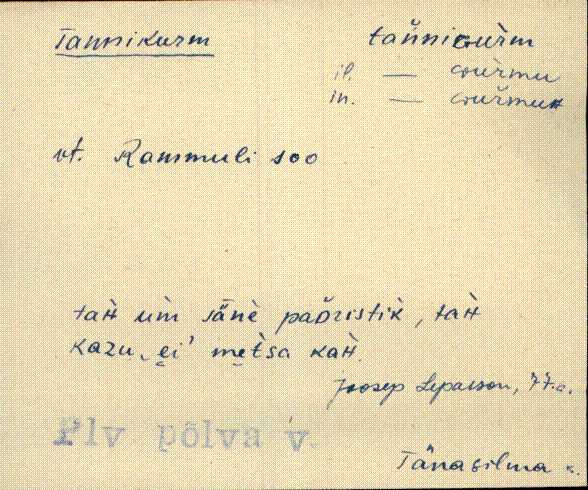 Tannikurm
tan̆niɢùrm
il. — ɢùrmu
in. — ɢuřmuʜ
vt. Rammuli soo
taʜ um säne paöristik̀, taʜ
kazu‿ei' metsa kaʜ.
Joosep Leparson, 77.a.
Plv põlva v.
Tänasilma k.